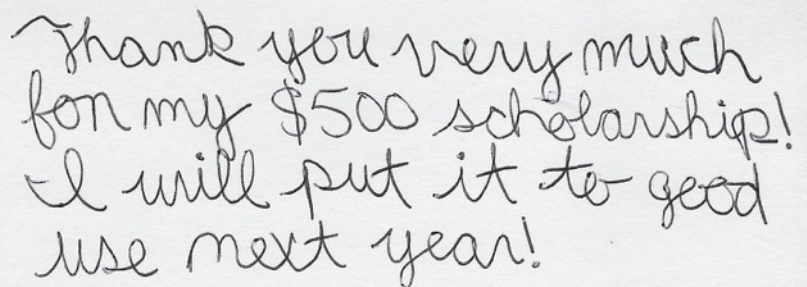 Thank you very much
for my $500 scholarship!
I will put it to good
use next year!